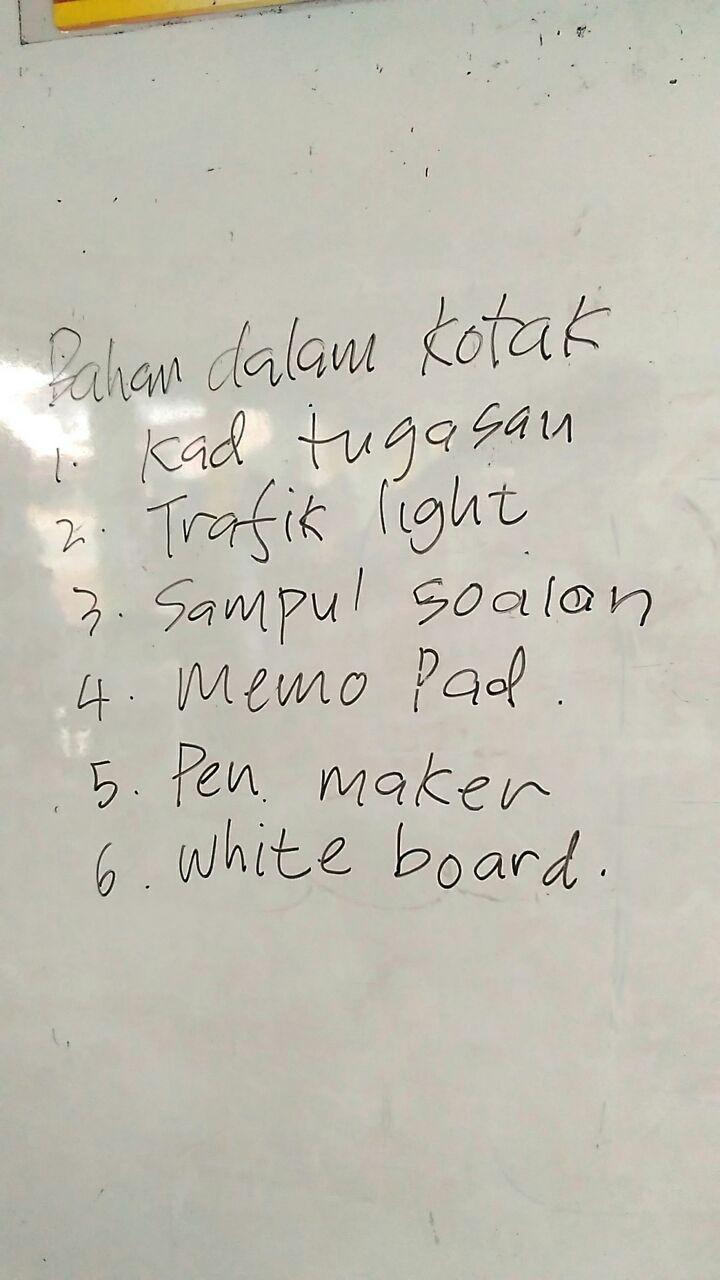 Bahan dalam kotak
1. Kad tugasan
2. Trafik light
3. Sampul soalan
4. Memo Pad.
5. Pen maker
6. White board.